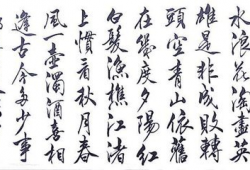 水浪花淘盡英
雄是非成敗轉
頭空青山依舊
在幾度夕陽紅
白髮漁樵江渚
上慣看秋月春
風一壺濁酒喜相
逢古今多少事